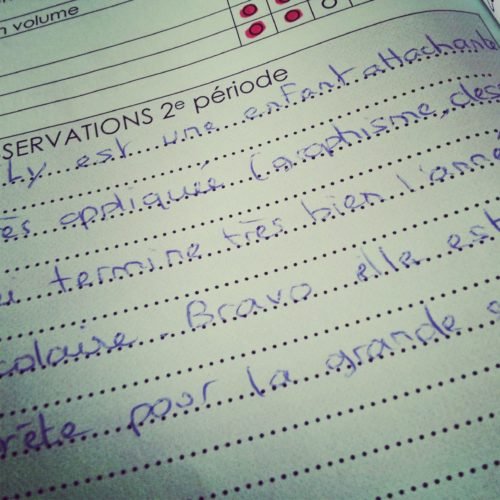 volume
SERVATIONS 2e période
Ly est une enfant attachante
appliquée (Graphisme, des
termine très bien l'anné
colaire. Bravo elle est
rête pour la grande